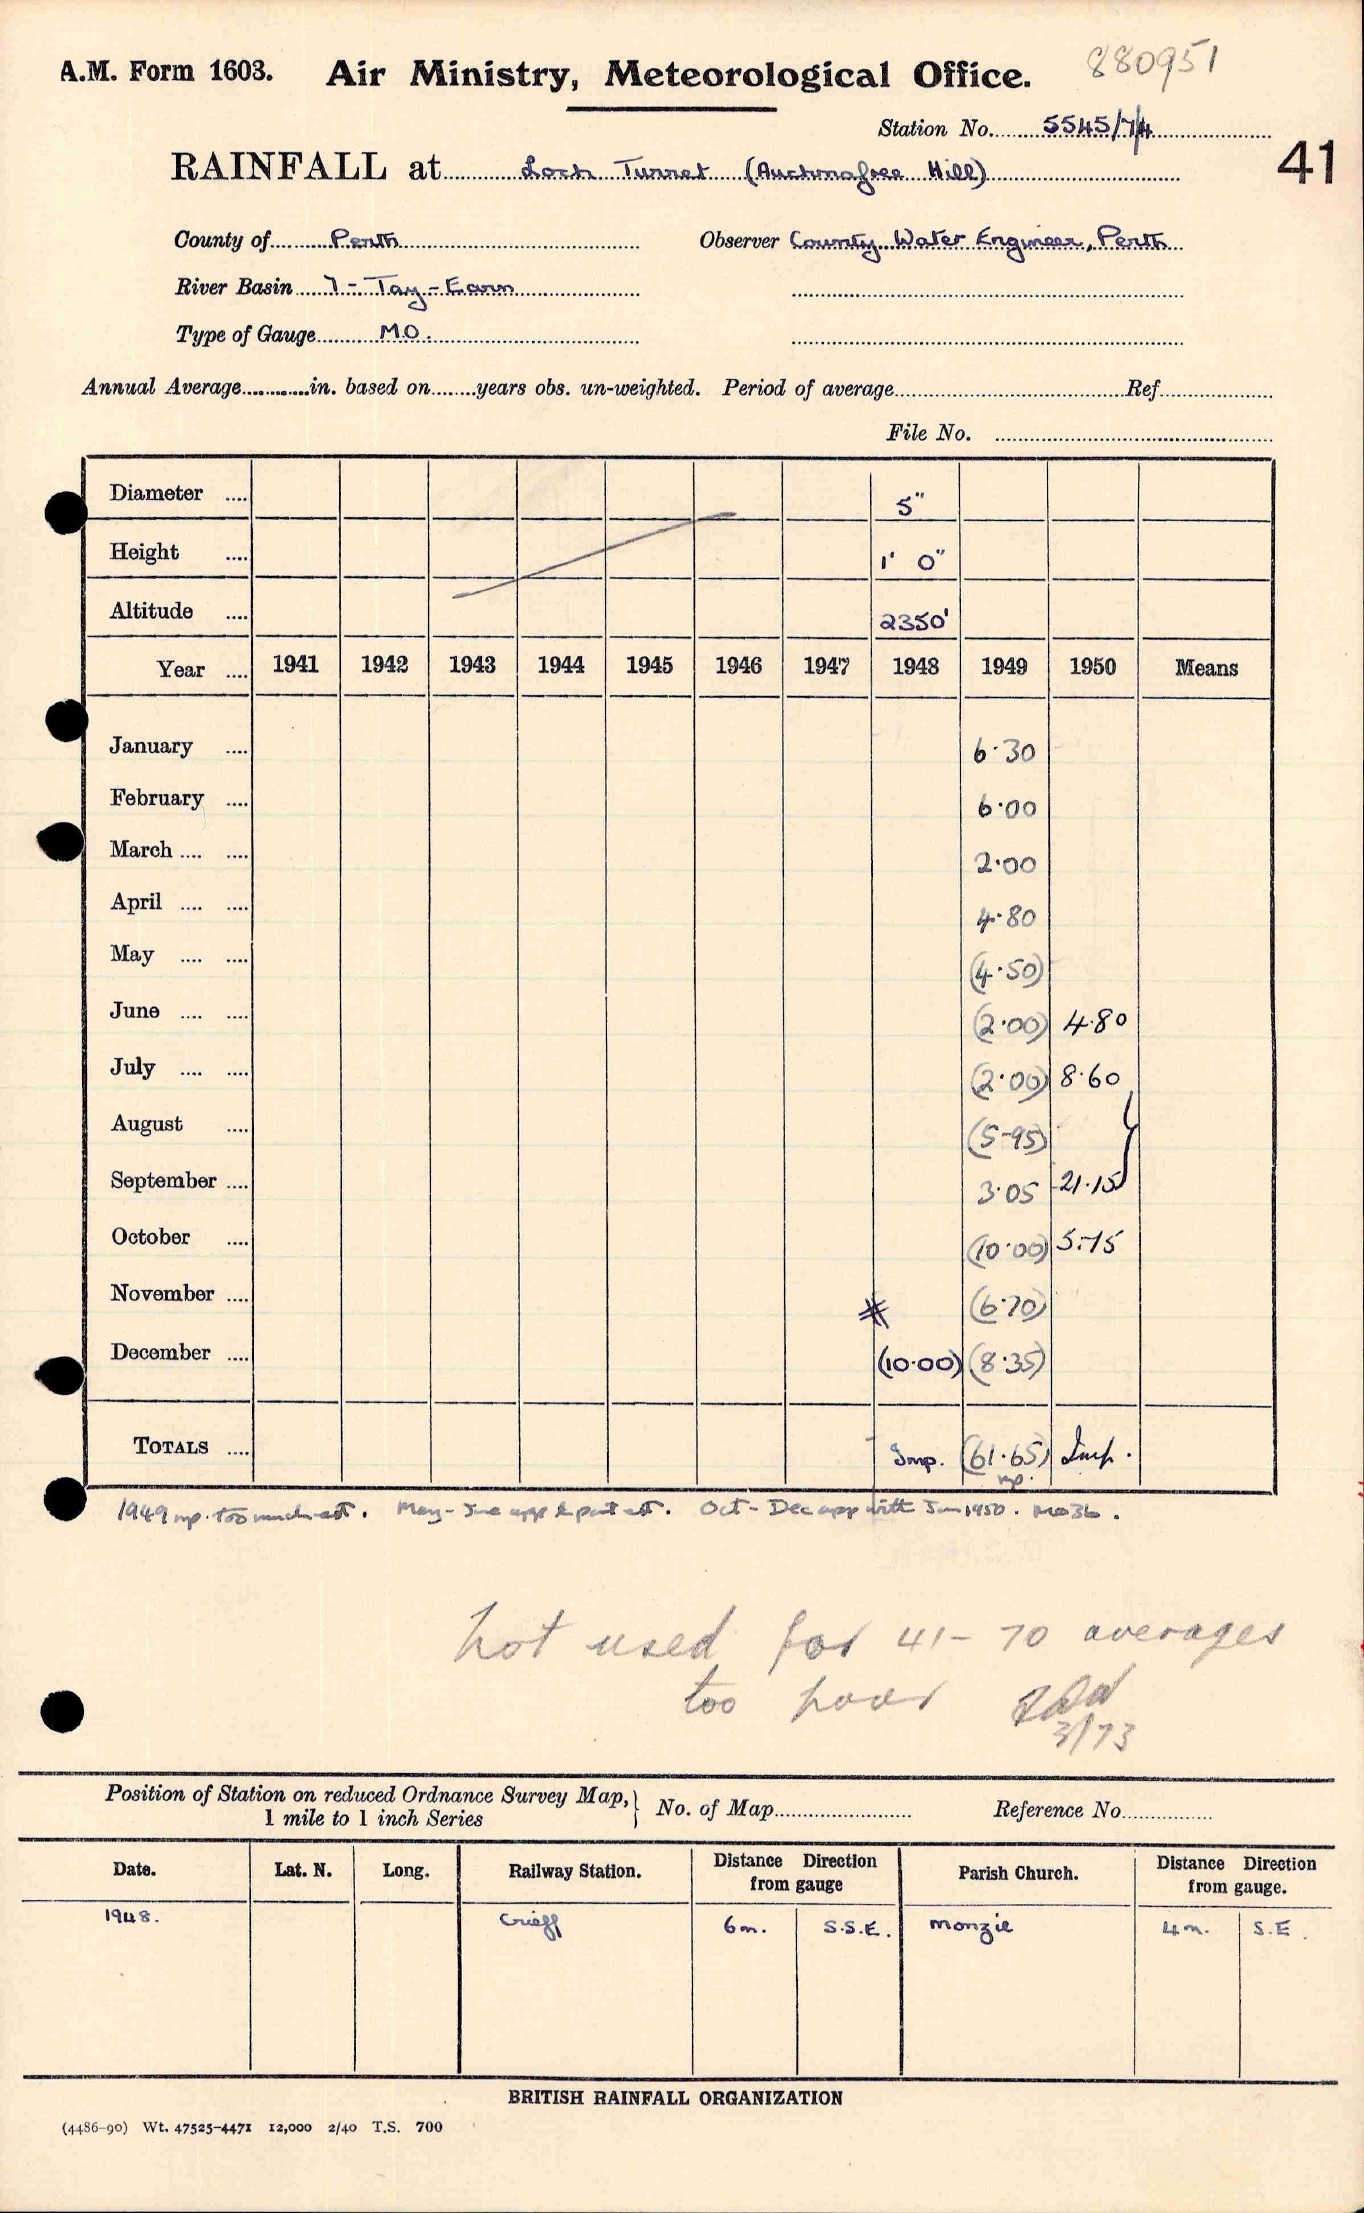 880951
A.M. Form 1603. Air Ministry, Meteorological Office.
Station No. 5545/7/4
41
RAINFALL at Loch Turret (Auchnafree Hill)
County of Perth Observer County Water Engineer, Perth
River Basin 7 - Tay - Earn
Type of Gauge M.O.
Annual Average............in. based on........years obs. un-weighted. Period of average Ref
File No.
Diameter .... 5"
Height .... 1' 0"
Altitude .... 2350'
Year .... 1941 1942 1943 1944 1945 1946 1947 1948 1949 1950 Means
January .... 6.30
February .... 6.00
March .... .... 2.00
April .... .... 4.80
May .... .... (4.50)
June .... .... (2.00) 4.80
July .... .... (2.00) 8.60
August .... (5.95)
September .... 3.05 21.15 }
October .... (10.00) 5.75
November .... (6.70)
December .... (10.00) (8.35)
TOTALS .... Imp. (61.65) Imp.
np.
1949 np. too much est. May - June app & part est. Oct - Dec app with Jan 1950. MO3b.
Not used for 41-70 averages
too poor
3/73
Position of Station on reduced Ordnance Survey Map, } No. of Map Reference No.
1 mile to 1 inch Series
Date. Lat. N. Long. Railway Station. Distance Direction from gauge Parish Church. Distance Direction from gauge.
1948. Crieff 6m. S.S.E. Monzie 4m. S.E.
BRITISH RAINFALL ORGANIZATION
(4486-90) Wt. 47525-4471 12,000 2/40 T.S. 700